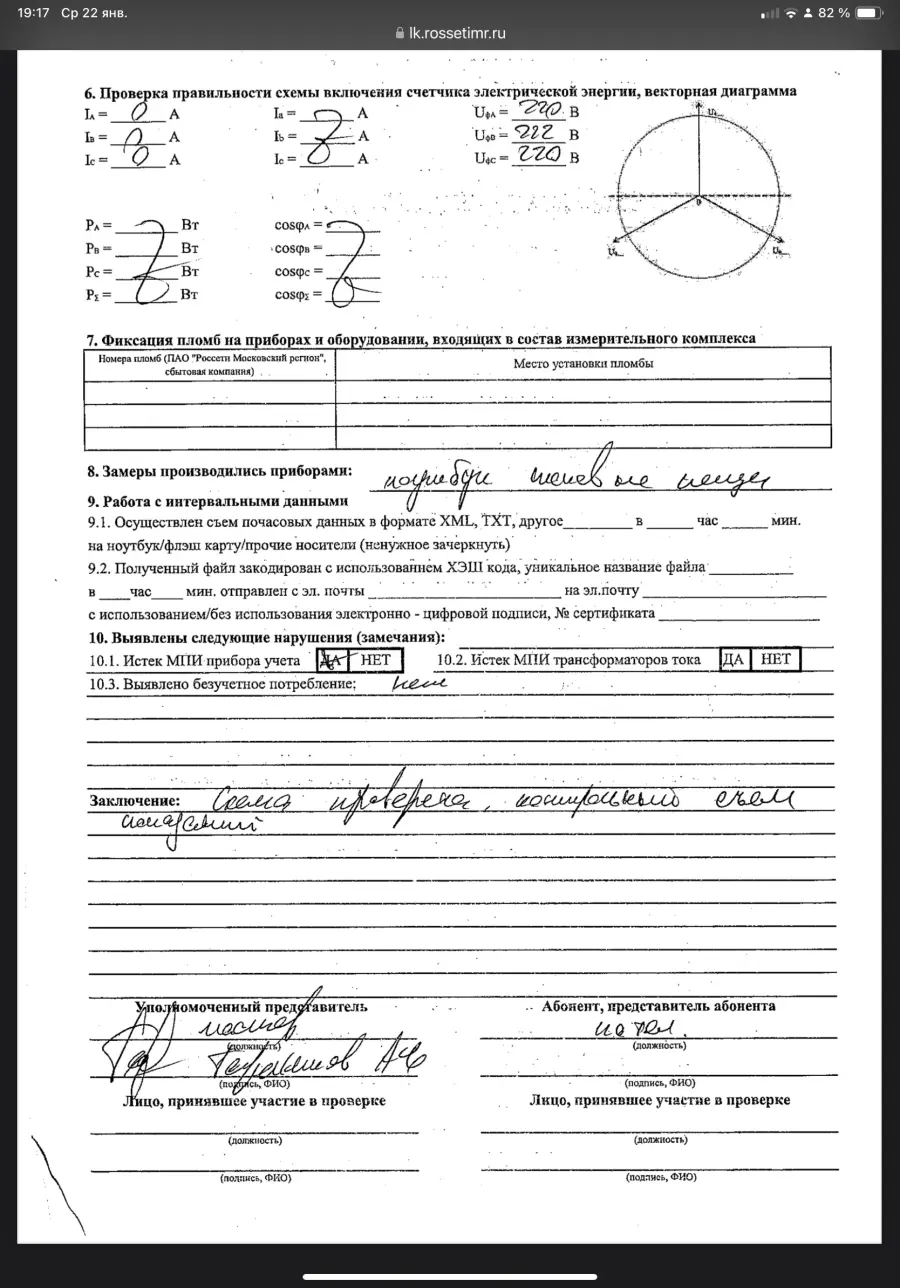 19:17 Ср 22 янв. 82 %
lk.rossetimr.ru
6. Проверка правильности схемы включения счетчика электрической энергии, векторная диаграмма
IА = 0 А Iа = А UфА = 220 В
IВ = 0 А Ib = А UфВ = 222 В
IС = 0 А Iс = А UфС = 220 В
РА = Вт cosφА =
РВ = Вт cosφВ =
РС = Вт cosφС =
РΣ = Вт cosφΣ =
7. Фиксация пломб на приборах и оборудовании, входящих в состав измерительного комплекса
Номера пломб (ПАО "Россети Московский регион", сбытовая компания) Место установки пломбы
8. Замеры производились приборами:
9. Работа с интервальными данными
9.1. Осуществлен съем почасовых данных в формате XML, TXT, другое__________ в ______ час ______ мин.
на ноутбук/флэш карту/прочие носители (ненужное зачеркнуть)
9.2. Полученный файл закодирован с использованием ХЭШ кода, уникальное название файла
в ____час____ мин. отправлен с эл. почты ____________ на эл.почту ____________
с использованием/без использования электронно - цифровой подписи, № сертификата
10. Выявлены следующие нарушения (замечания):
10.1. Истек МПИ прибора учета ДА НЕТ 10.2. Истек МПИ трансформаторов тока ДА НЕТ
10.3. Выявлено безучетное потребление: нет
Заключение: Схема проверена, контрольный съем
показаний
Уполномоченный представитель Абонент, представитель абонента
мастер
(должность) (должность)
(подпись, ФИО) (подпись, ФИО)
Лицо, принявшее участие в проверке Лицо, принявшее участие в проверке
(должность) (должность)
(подпись, ФИО) (подпись, ФИО)